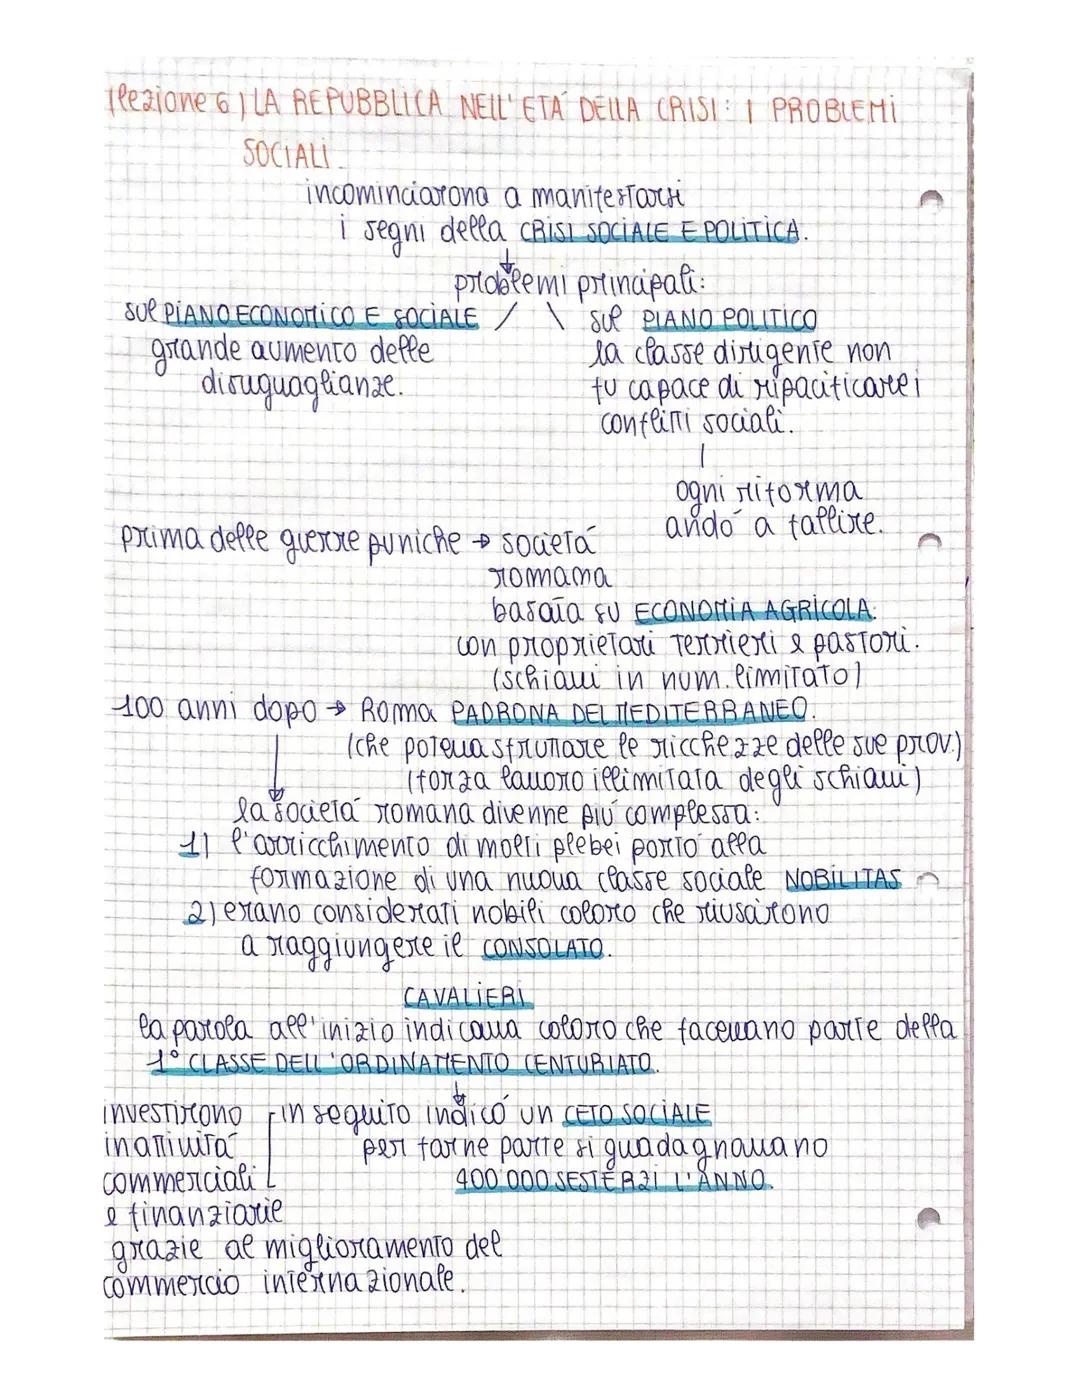 (lezione 6) LA REPUBBLICA NELL'ETÁ DELLA CRISI: I PROBLEMI
SOCIALI.
incominciarono a manifestarsi
i segni della CRISI SOCIALE E POLITICA.
problemi principali:
sul PIANO ECONOMICO E SOCIALE
grande aumento delle
disuguaglianze.
sul PIANO POLITICO
la classe dirigente non
fu capace di ripacificare i
conflitti sociali.
ogni riforma
andó a fallire.
prima delle guerre puniche → societá
romana
basata su ECONOMIA AGRICOLA.
con proprietari terrieri e pastori.
(schiavi in num. limitato)
100 anni dopo → Roma PADRONA DEL MEDITERRANEO.
(che poteva sfruttare le ricchezze delle sue prov.)
(forza lavoro illimitata degli schiavi)
la societá romana divenne piú complessa:
1) l'arricchimento di molti plebei portó alla
formazione di una nuova classe sociale NOBILITAS
2) erano considerati nobili coloro che riusirono
a raggiungere il CONSOLATO.
CAVALIERI
la parola all'inizio indicava coloro che facevano parte della
1° CLASSE DELL'ORDINAMENTO CENTURIATO.
in seguito indicó un CETO SOCIALE
per farne parte si guadagnavano
400'000 SESTERZI L'ANNO.
investirono
in attivitá
commerciali
e finanziarie
grazie al miglioramento del
commercio internazionale.